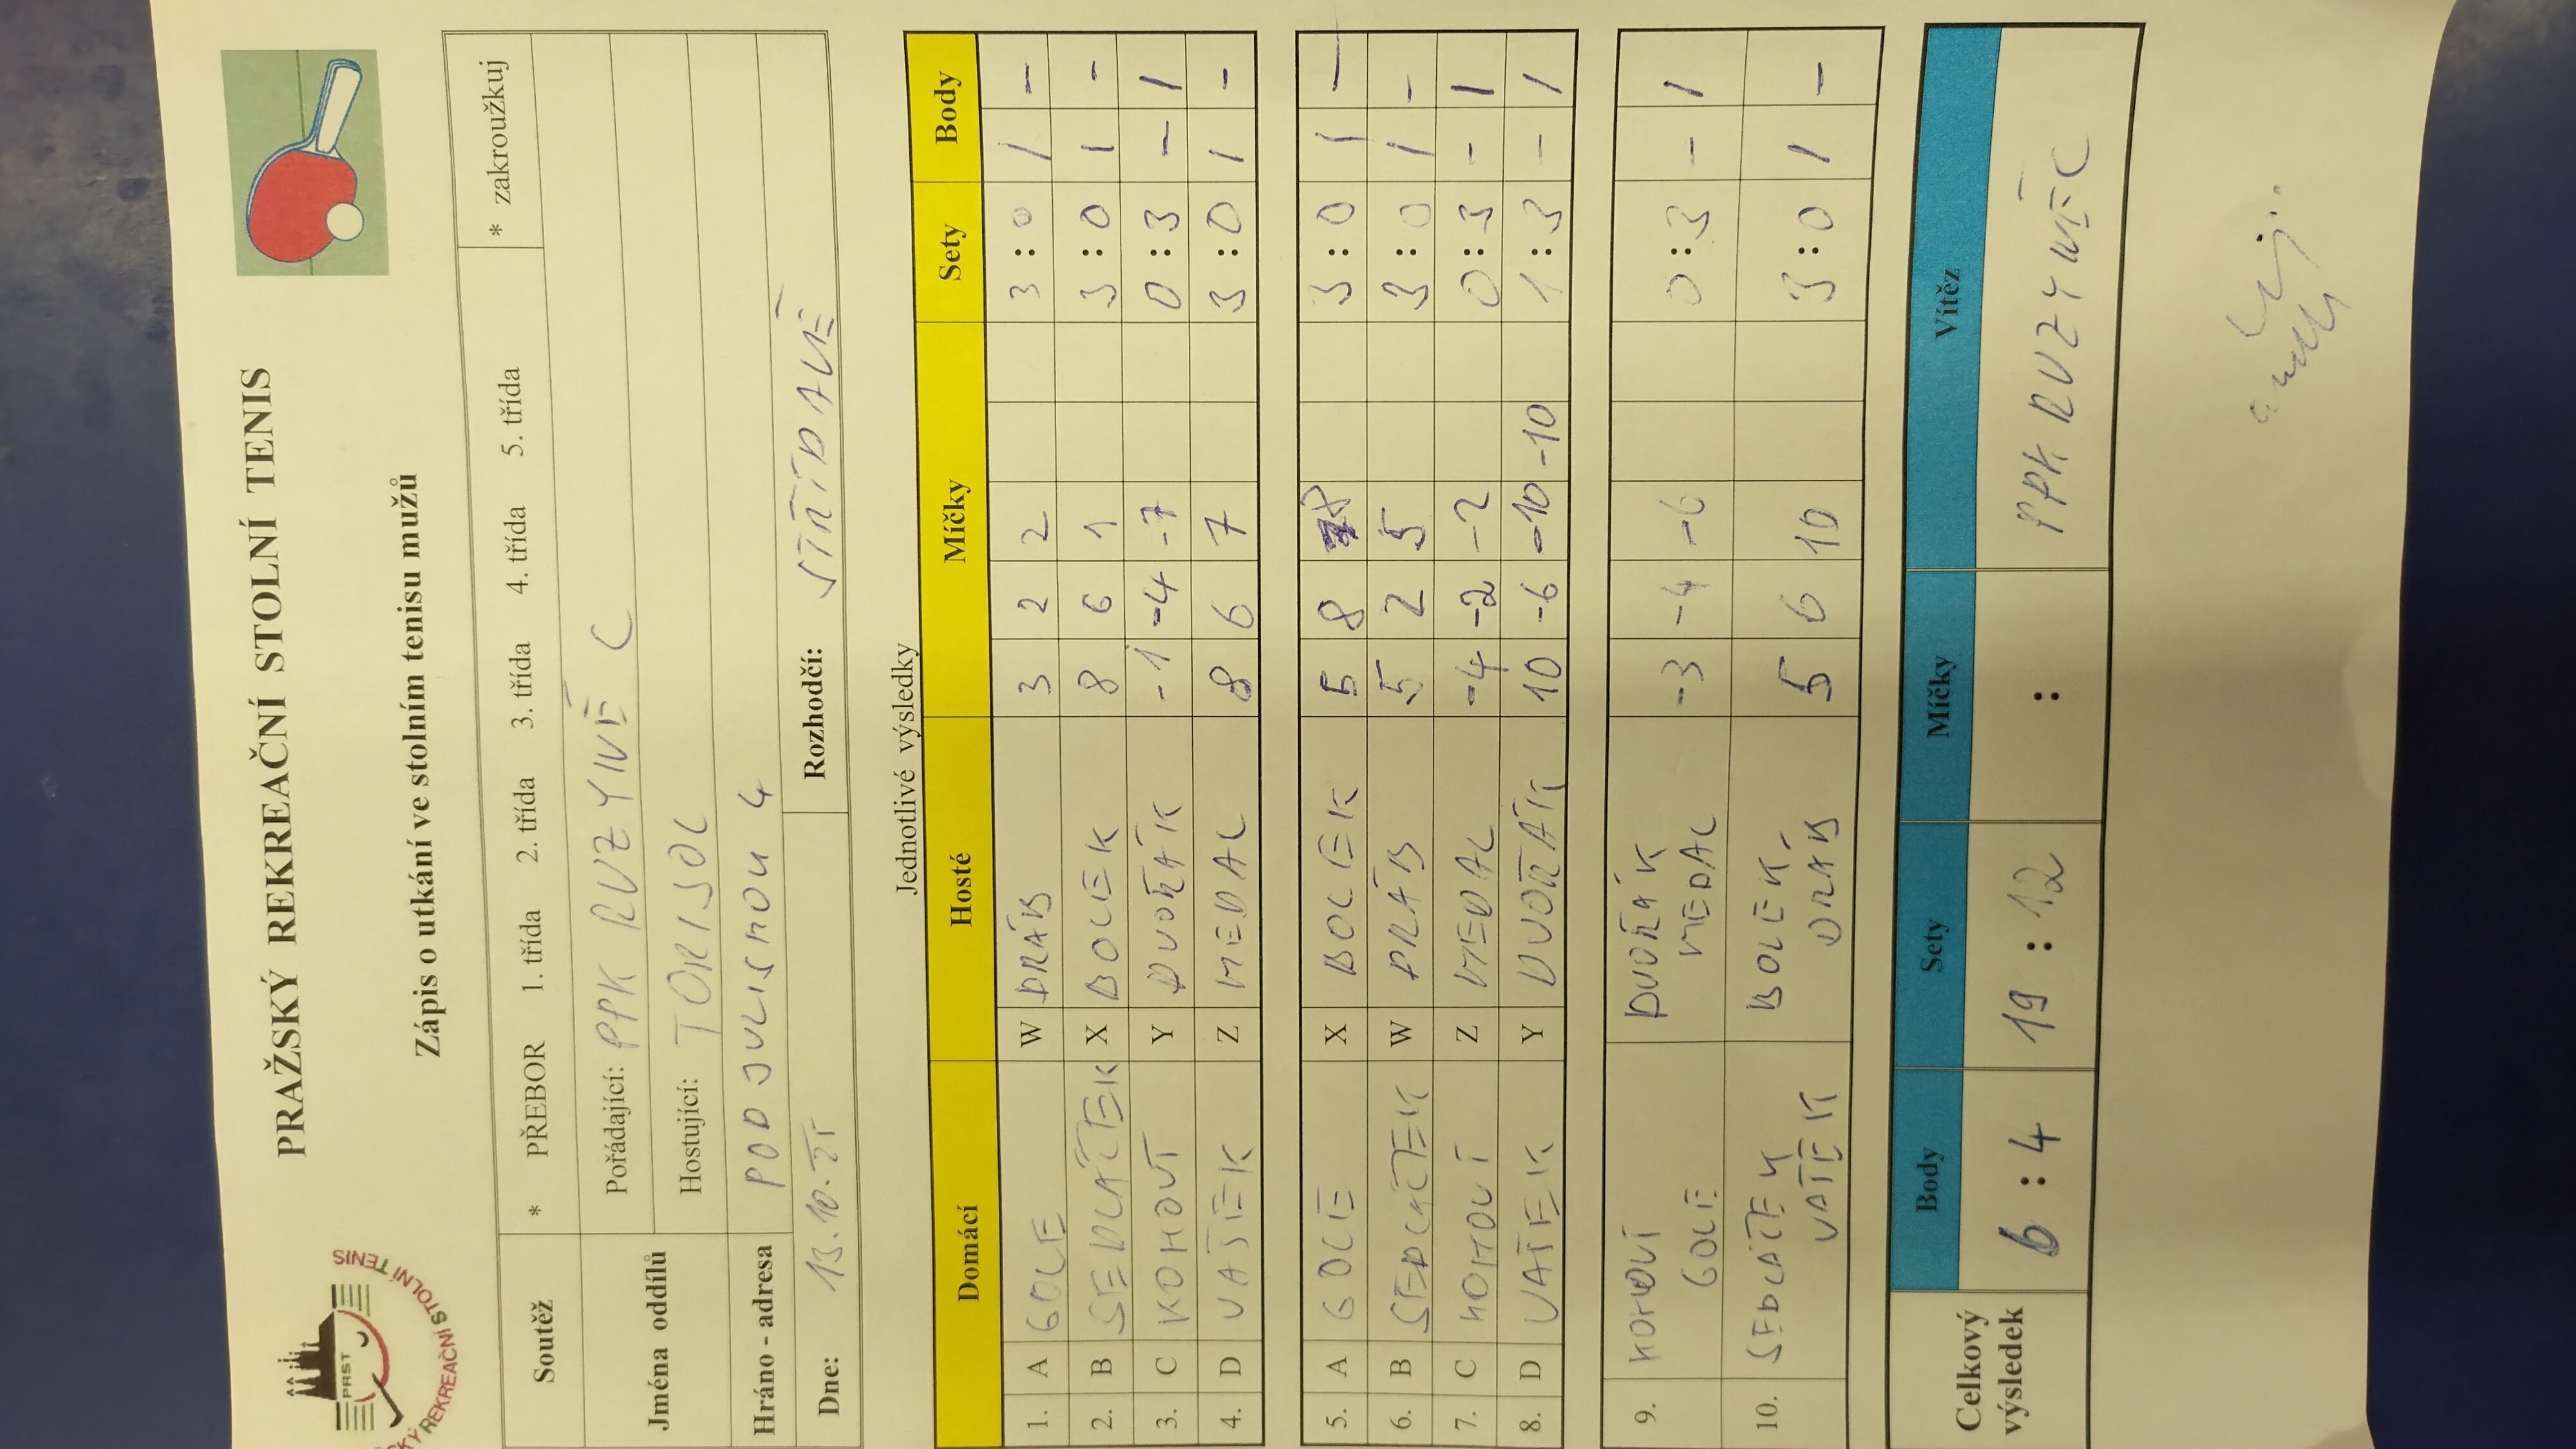 PRAŽSKÝ REKREAČNÍ STOLNÍ TENIS
PRST
SKÝ REKREAČNÍ STOLNÍ TENIS
Zápis o utkání ve stolním tenisu mužů
Soutěž * PŘEBOR 1. třída 2. třída 3. třída 4. třída 5. třída * zakroužkuj
Jména oddílů Pořádající: PPK RUZYNĚ C
Hostující: TORISOL
Hráno - adresa POD JULISKOU 4
Dne: 13.10. Rozhodčí: STŘÍDAVĚ
Jednotlivé výsledky
Domácí Hosté Míčky Sety Body
1. A GOLE W DRÁB 3 2 2 3 : 0 1 -
2. B SEDLÁČEK X BOLEK 8 6 1 3 : 0 1 -
3. C KOHOUT Y DVOŘÁK -1 -4 -7 0 : 3 - 1
4. D VAŠEK Z MEDAL 8 6 7 3 : 0 1 -
5. A GOLE X BOLEK 5 8 8 3 : 0 1 -
6. B SEDLÁČEK W DRÁB 5 2 5 3 : 0 1 -
7. C KOHOUT Z MEDAL -4 -2 -2 0 : 3 - 1
8. D VAŠEK Y DVOŘÁK 10 -6 -10 -10 1 : 3 - 1
9. KOHOUT GOLE DVOŘÁK MEDAL -3 -4 -6 0 : 3 - 1
10. SEDLÁČEK VAŠEK BOLEK - DRÁB 5 6 10 3 : 0 1 -
Celkový výsledek Body Sety Míčky Vítěz
6 : 4 19 : 12 : PPK RUZYNĚ C